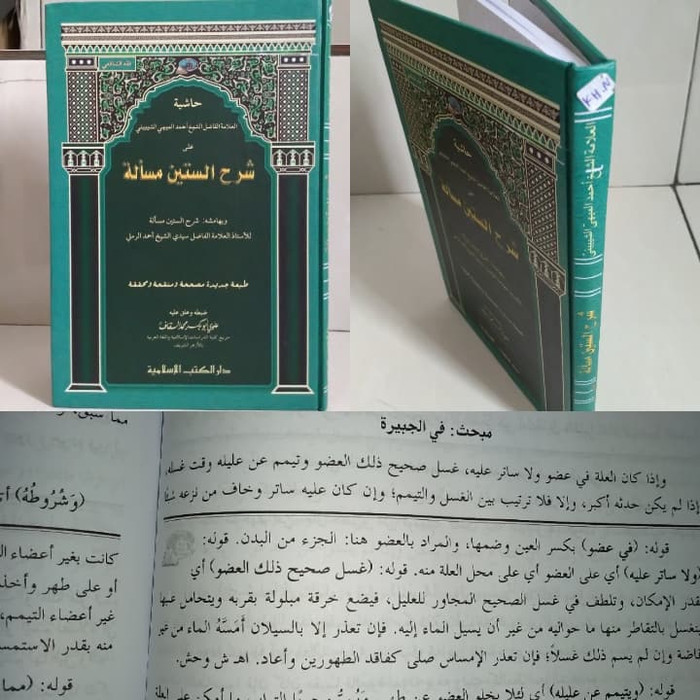 فقه الشافعي
حاشية
العلامة الفاضل الشيخ أحمد الميهي الشيبيني
على
شرح الستين مسألة
وبهامشه: شرح الستين مسألة
للأستاذ العلامة الفاضل سيدي الشيخ أحمد الرملي
طبعة جديدة مصححة ومنقحة ومحققة
ضبطه وعلق عليه
علوي أبوبكر محمد السقاف
خريج كلية الدراسات الإسلامية واللغة العربية
بالأزهر الشريف
دار الكتب الإسلامية
حاشية
شرح الستين مسألة
العلامة الشيخ أحمد الميهي الشيبيني
شرح الستين مسألة
مما سبق،
(وَشُرُوطُهُ)
كانت بغير أعضاء
أو على طهر وأخذ
غير أعضاء التيمم،
منه بقدر الاستمس
قوله:
مبحث: في الجبيرة
وإذا كان العلة في عضو ولا ساتر عليه، غسل صحيح ذلك العضو وتيمم عن عليله وقت غسله،
إذا لم يكن حدثه أكبر، وإلا فلا ترتيب بين الغسل والتيمم؛ وإن كان عليه ساتر وخاف من نزعه
قوله: (في عضو) بكسر العين وضمها، والمراد بالعضو هنا: الجزء من البدن. قوله:
(ولا ساتر عليه) أي على العضو أي على محل العلة منه. قوله: (غسل صحيح ذلك العضو) أي
بقدر الإمكان، وتلطف في غسل الصحيح المجاور للعليل، فيضع خرقة مبلولة بقربه ويتحامل عليها
لينغسل بالتقاطر منها ما حواليه من غير أن يسيل الماء إليه. فإن تعذر إلا بالسيلان أَمَسَّهُ الماء من غير
إفاضة وإن لم يسم ذلك غسلاً؛ فإن تعذر الإمساس صلى كفاقد الطهورين وأعاد. اهـ ش وحش.
قوله: (ويتيمم عن عليله) أي لئلا يخلو العضو عن